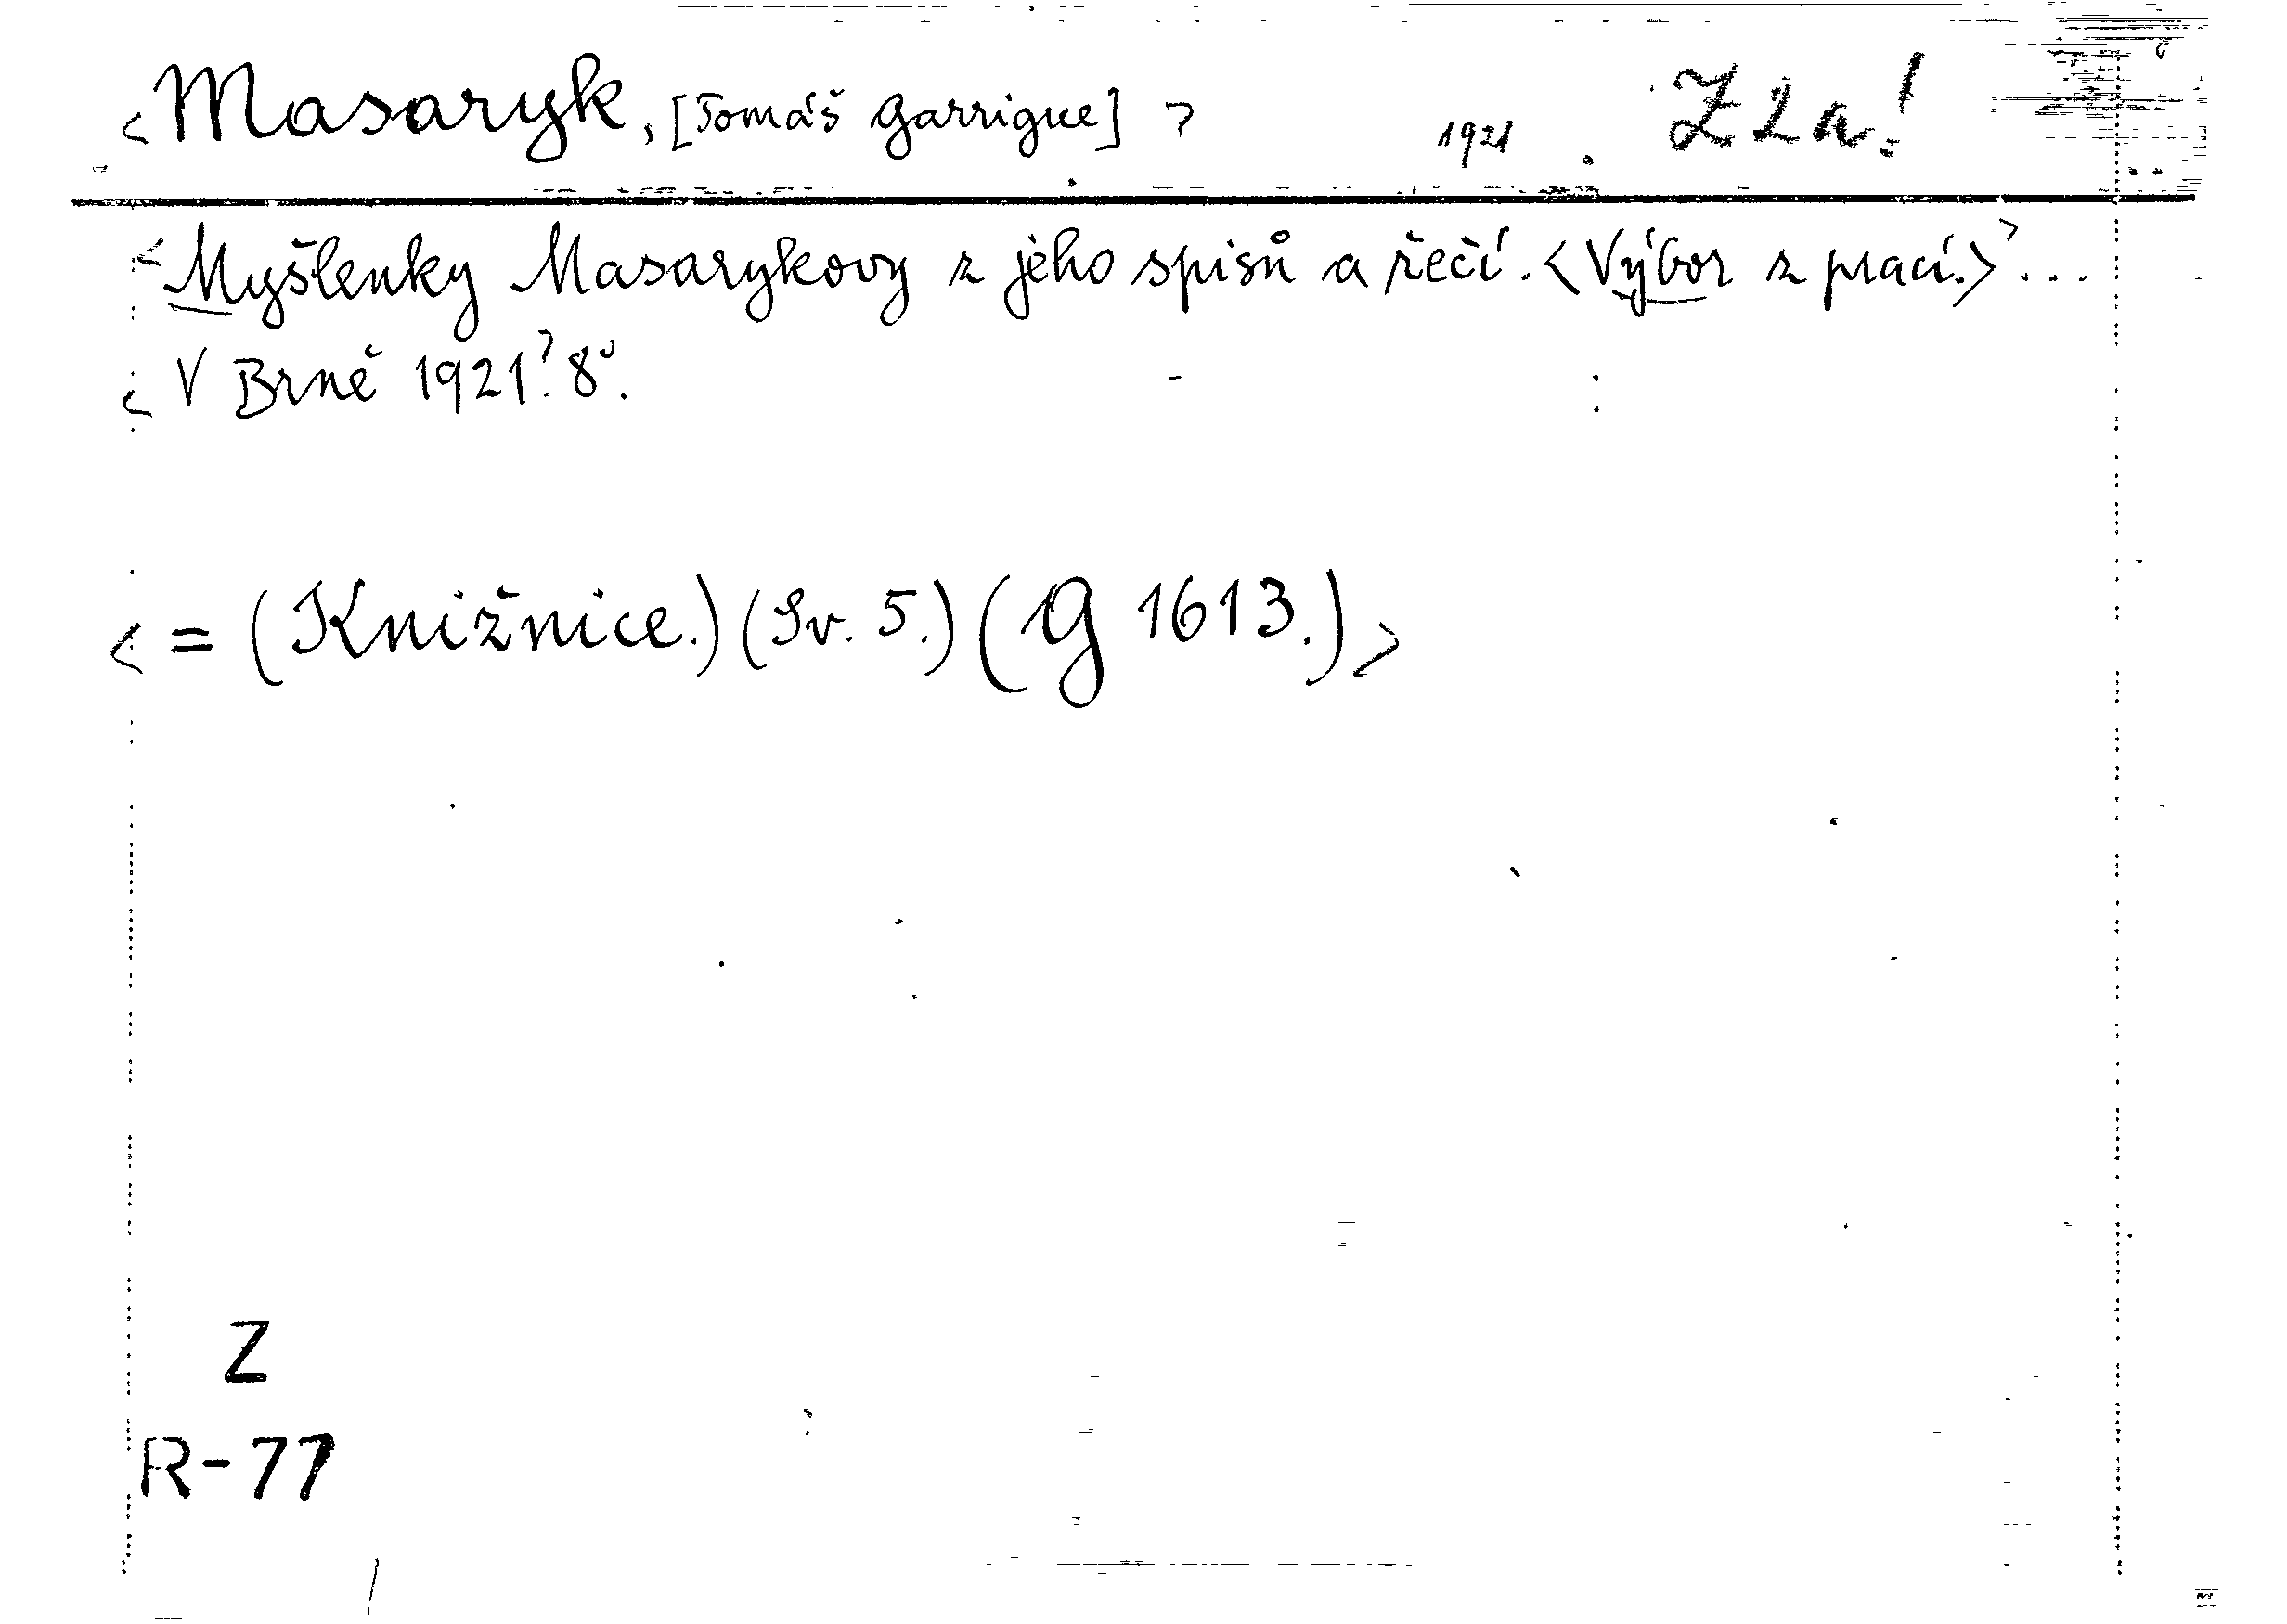 <Masaryk, [Tomáš Garrigue]> 1921. Z2a!
<Myšlenky Masarykovy z jeho spisů a řečí. <Výbor z prací.>> ...
<V Brně 1921> 8°.
<= (Knižnice.) (Sv. 5.) (G 1613.)>
Z
R-77